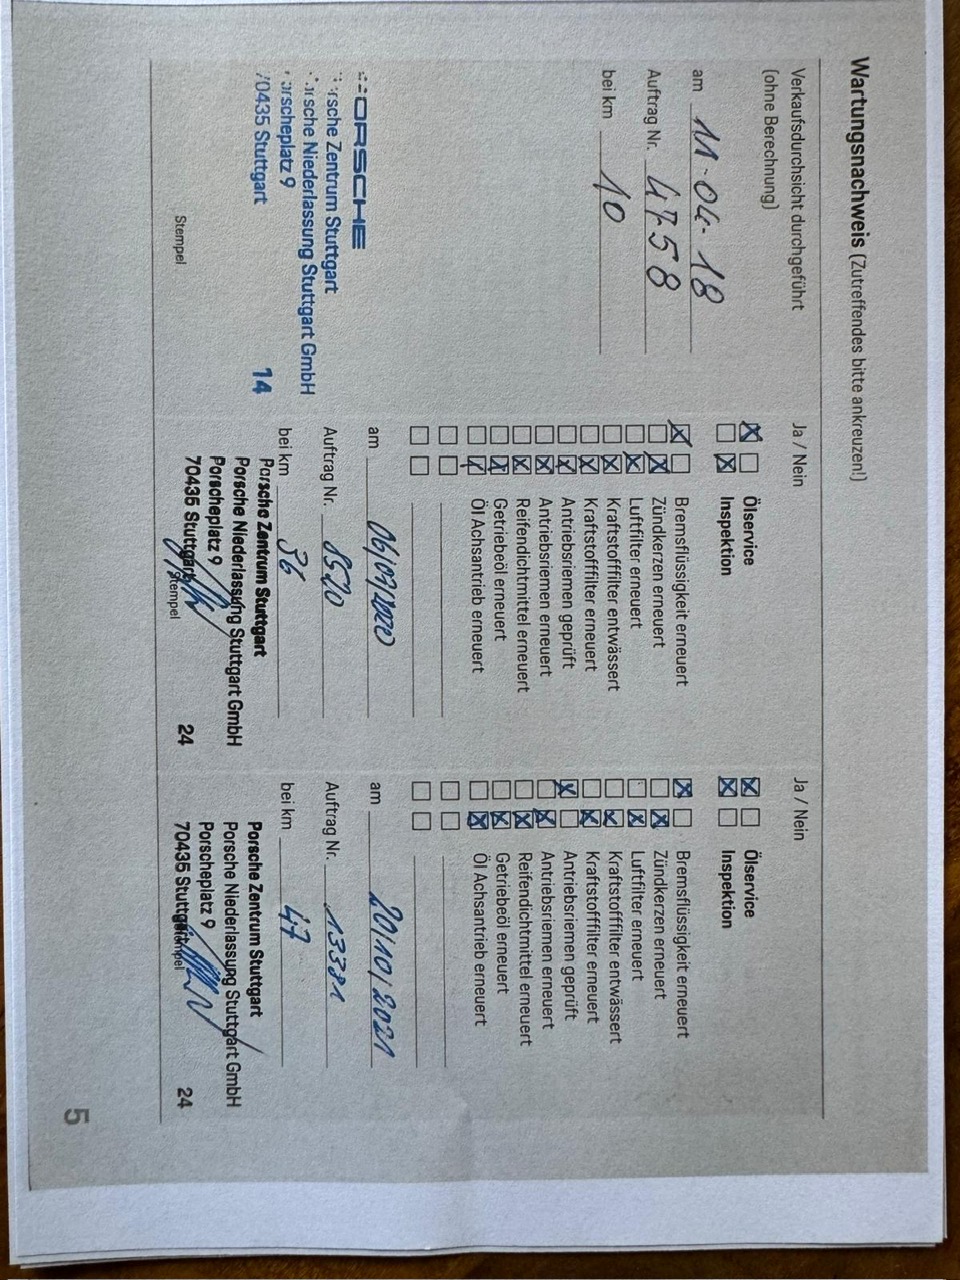 Wartungsnachweis (Zutreffendes bitte ankreuzen!)
Verkaufsdurchsicht durchgeführt
(ohne Berechnung)
am 11.04.18
Auftrag Nr. 4758
bei km 10
PORSCHE
Porsche Zentrum Stuttgart
Porsche Niederlassung Stuttgart GmbH
Porscheplatz 9
70435 Stuttgart
14
Stempel
Ja / Nein
Ölservice
Inspektion
Bremsflüssigkeit erneuert
Zündkerzen erneuert
Luftfilter erneuert
Kraftstofffilter entwässert
Kraftstofffilter erneuert
Antriebsriemen geprüft
Antriebsriemen erneuert
Reifendichtmittel erneuert
Getriebeöl erneuert
Öl Achsantrieb erneuert
am
Auftrag Nr. 8520
bei km 36
Porsche Zentrum Stuttgart
Porsche Niederlassung Stuttgart GmbH
Porscheplatz 9
70435 Stuttgart
Stempel
24
Ja / Nein
Ölservice
Inspektion
Bremsflüssigkeit erneuert
Zündkerzen erneuert
Luftfilter erneuert
Kraftstofffilter entwässert
Kraftstofffilter erneuert
Antriebsriemen geprüft
Antriebsriemen erneuert
Reifendichtmittel erneuert
Getriebeöl erneuert
Öl Achsantrieb erneuert
am 20/10/2021
Auftrag Nr. 13381
bei km 47
Porsche Zentrum Stuttgart
Porsche Niederlassung Stuttgart GmbH
Porscheplatz 9
70435 Stuttgart
Stempel
24
5